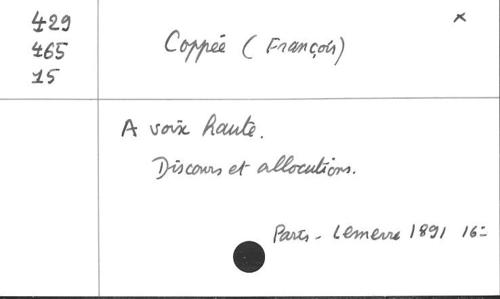 429
465
15
Coppée (François)
x
A voix haute.
Discours et allocutions.
Paris - Lemerre 1891 16=